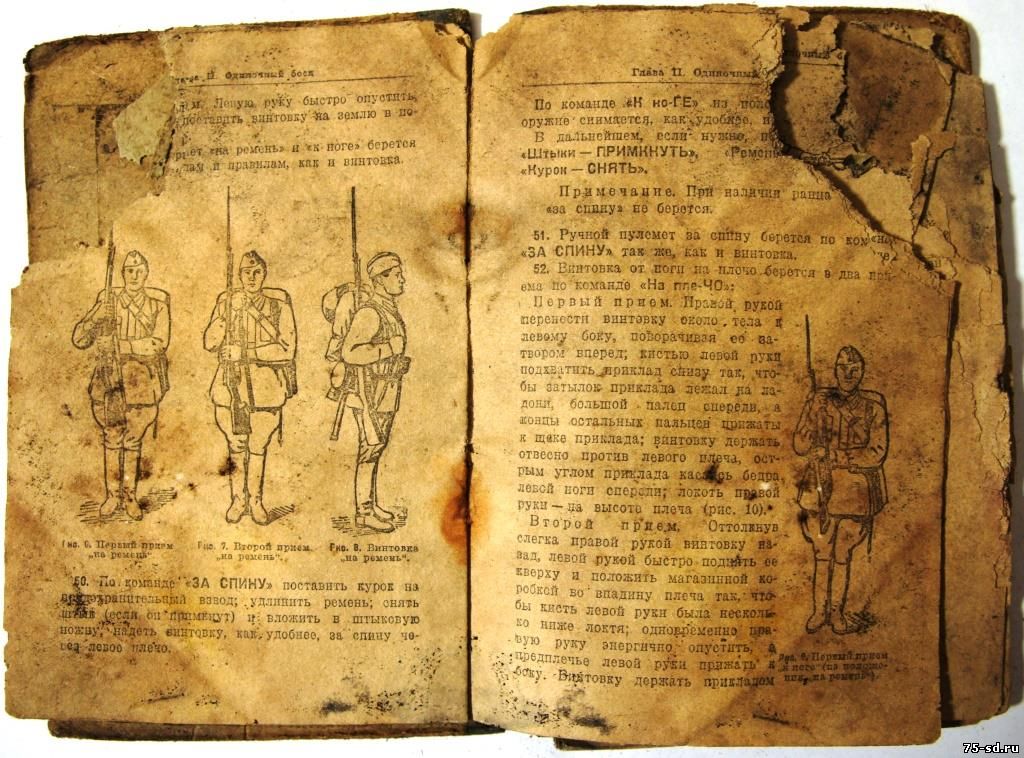 II. Одиночный боец
Левую руку быстро опустить,
поставить винтовку на землю в по-
«на ремень» и «к ноге» берется
и правилам, как и винтовка.
Рис. 6. Первый прием
„на ремень“.
Рис. 7. Второй прием
„на ремень“.
Рис. 8. Винтовка
„на ремень“.
50. По команде «ЗА СПИНУ» поставить курок на
предохранительный взвод; удлинить ремень; снять
штык (если он примкнут) и вложить в штыковую
ножну, надеть винтовку, как удобнее, за спину че-
рез левое плечо.
Глава II. Одиночный
По команде «К но-ГЕ» из
оружие снимается, как удобнее,
В дальнейшем, если нужно,
«Штыки — ПРИМКНУТЬ»,
«Курок — СНЯТЬ».
Примечание. При наличии ранца
«за спину» не берется.
51. Ручной пулемет за спину берется по
«ЗА СПИНУ» так же, как и винтовка.
52. Винтовка от ноги на плечо берется в два при-
ема по команде «На пле-ЧО»:
Первый прием. Правой рукой
перенести винтовку около тела к
левому боку, поворачивая ее за-
твором вперед; кистью левой руки
подхватить приклад снизу так, что-
бы затылок приклада лежал на ла-
дони, большой палец спереди, а
концы остальных пальцев прижаты
к щеке приклада; винтовку держать
отвесно против левого плеча, ост-
рым углом приклада касаясь бедра
левой ноги спереди; локоть правой
руки — на высоте плеча (рис. 10).
Второй прием. Оттолкнув
слегка правой рукой винтовку на-
зад, левой рукой быстро поднять ее
кверху и положить магазинной ко-
робкой во впадину плеча так, что-
бы кисть левой руки была несколь-
ко ниже локтя; одновременно пра-
вую руку энергично опустить, а
предплечье левой руки прижать к
боку. Винтовку держать прикладом
Рис. 9. Первый прием
„к ноге“ (из положе-
ния „на ремень“).
75-sd.ru